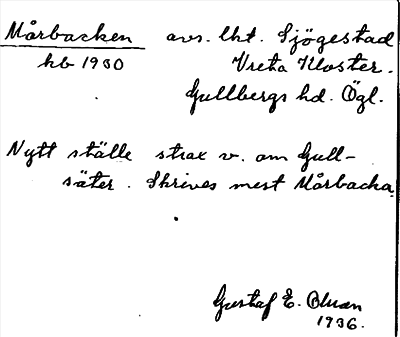 Mårbacken avs. lht. Sjögestad
kb 1930 Vreta Kloster.
Gullbergs hd. Ögl.
Nytt ställe strax v. om Gull-
säter. Skrives mest Mårbacka.
Gustaf E. Bluan
1936.